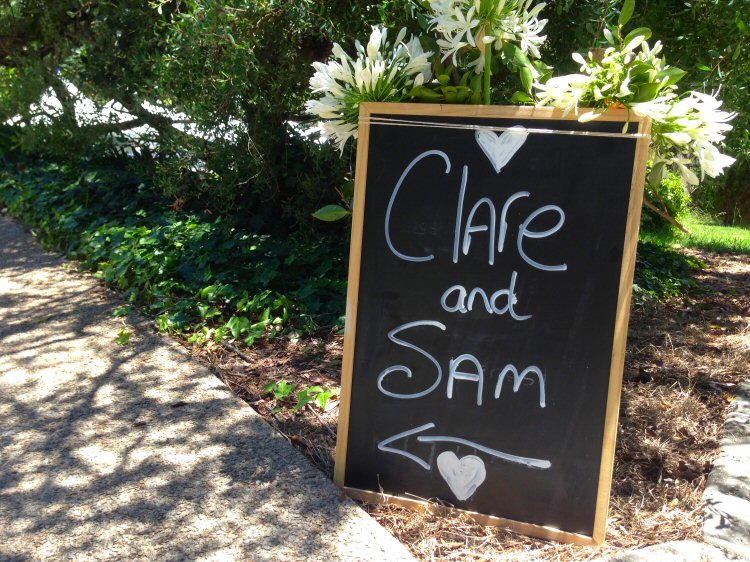 Clare
and
Sam